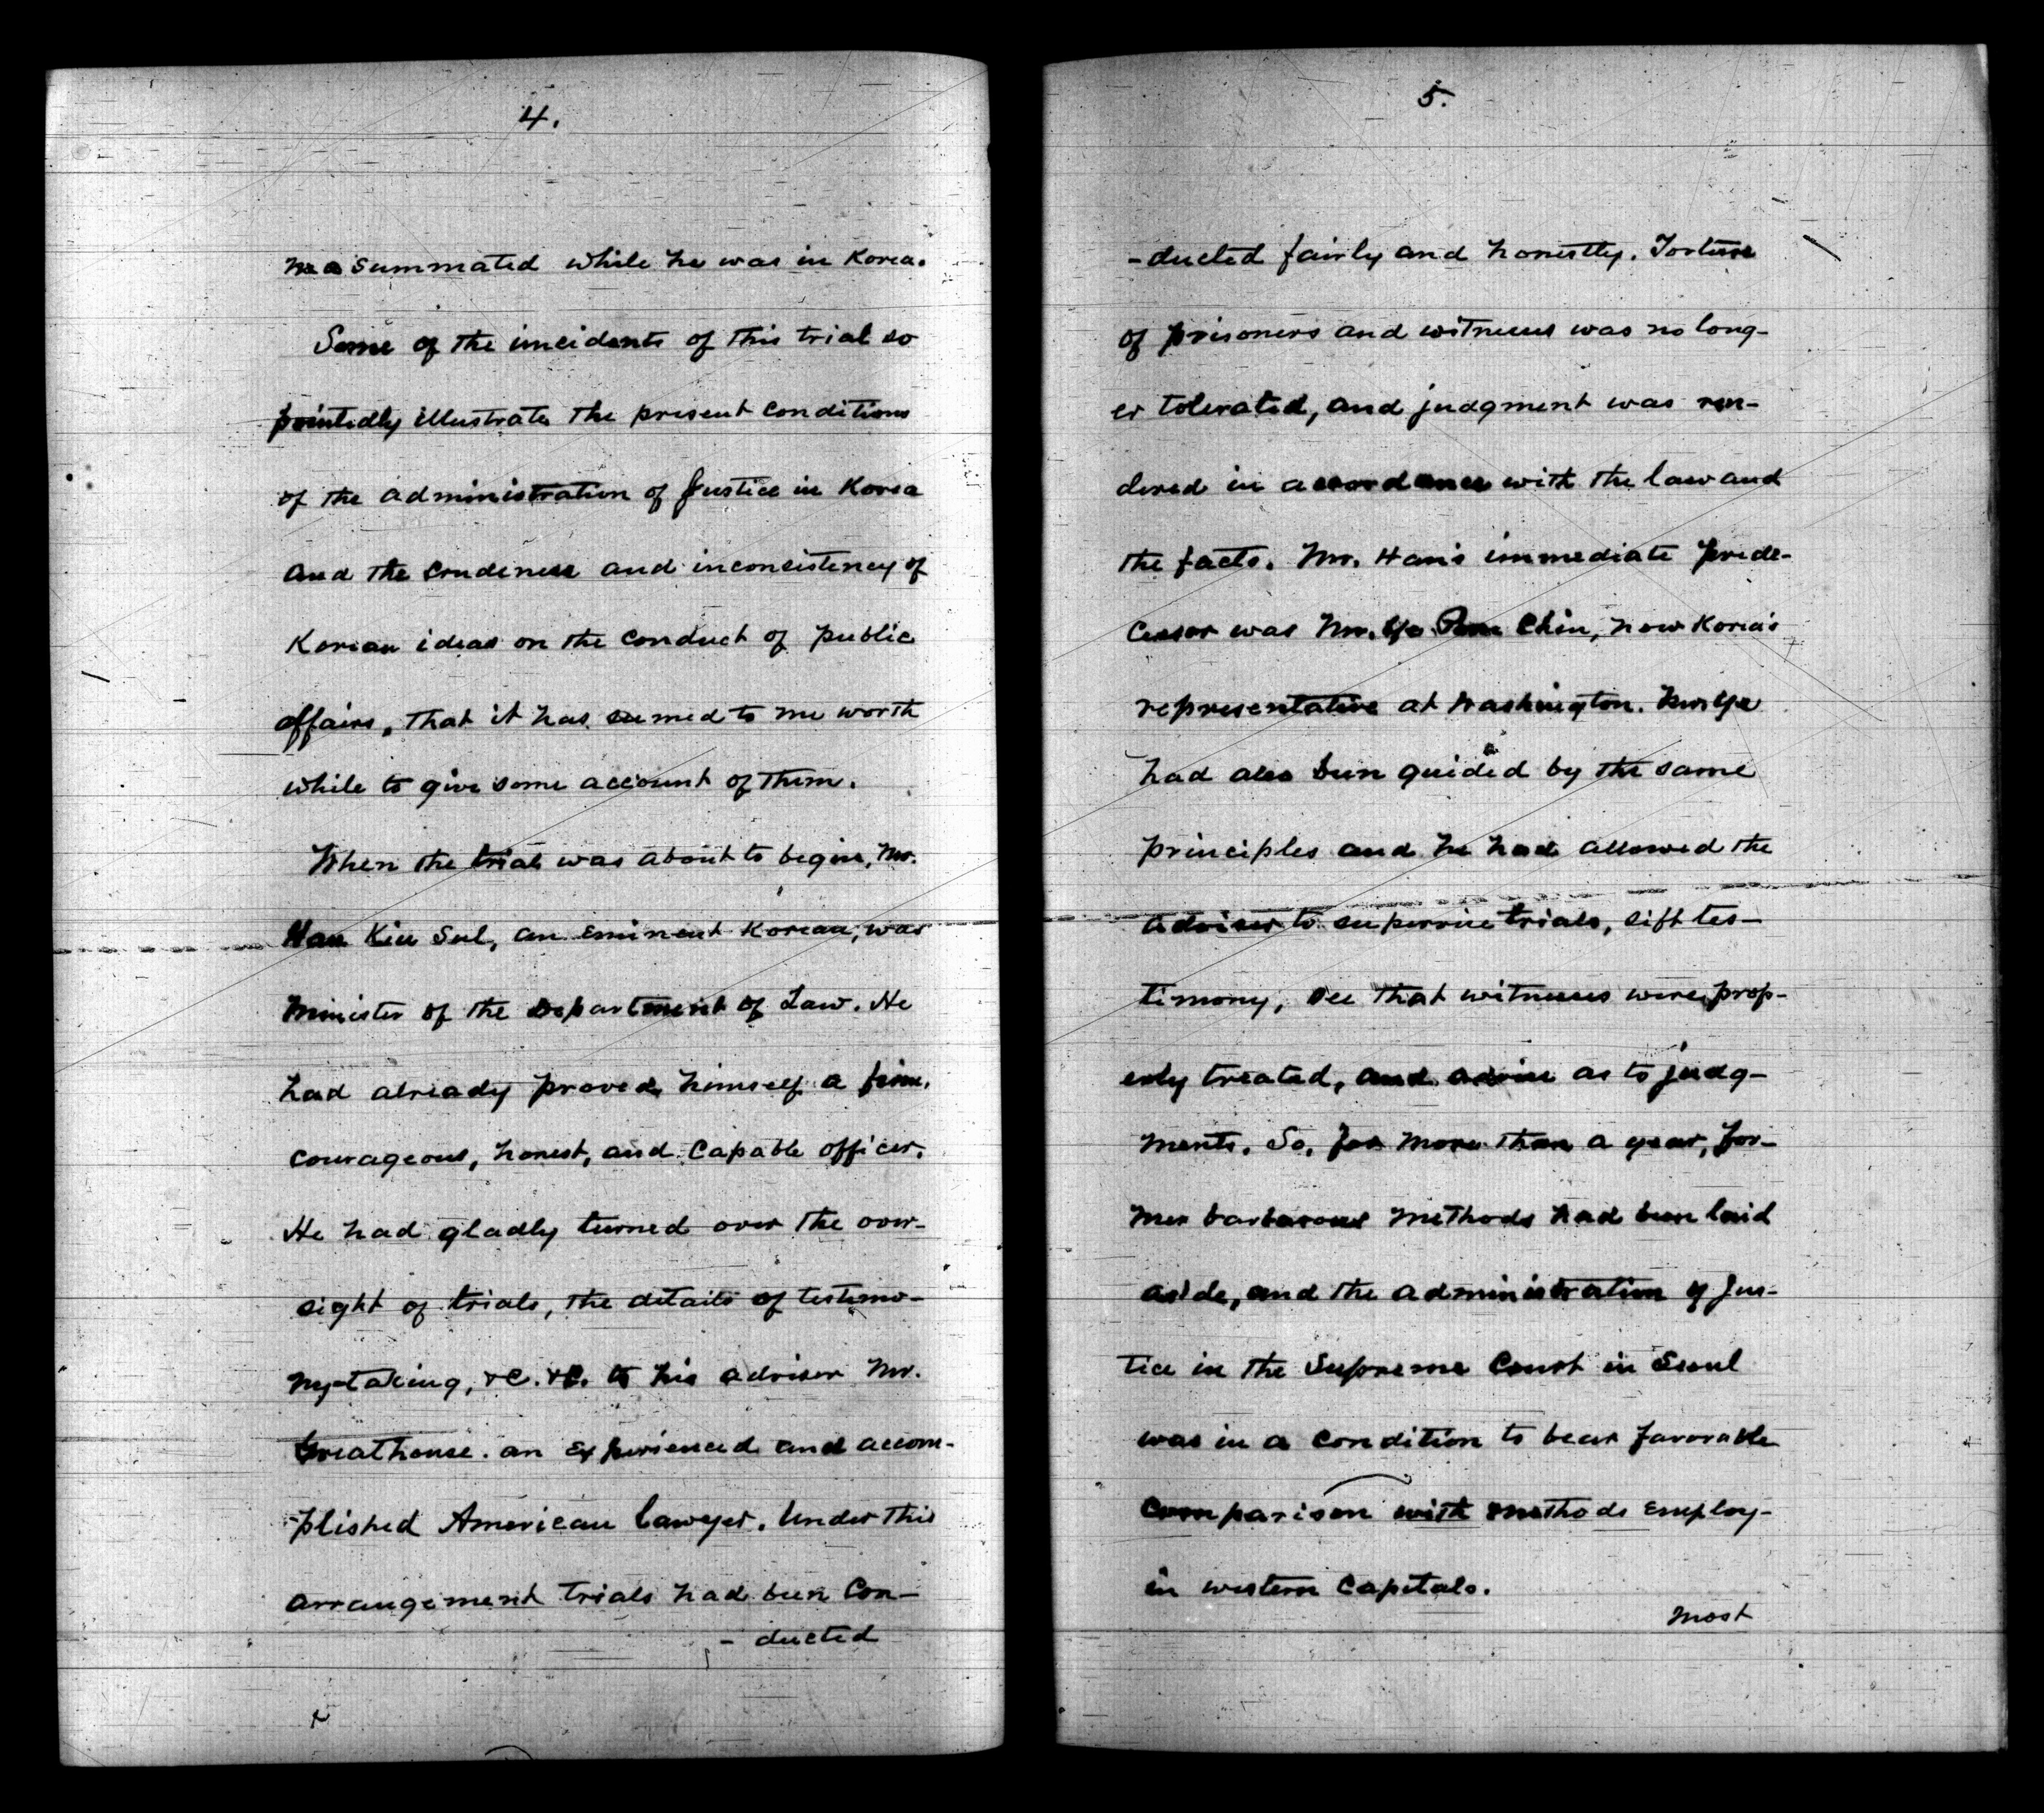 4.
summated while he was in Korea.
Some of the incidents of this trial so
pointedly illustrate the present conditions
of the administration of Justice in Korea
and the crudeness and inconsistency of
Korean ideas on the conduct of public
affairs, that it has seemed to me worth
while to give some account of them.
When the trial was about to begin, Mr.
Han Kiu Sul, an eminent Korean, was
Minister of the Department of Law. He
had already proved himself a firm,
courageous, honest, and capable officer.
He had gladly turned over the over-
sight of trials, the details of testimo-
ny-taking, &c. &c. to his adviser Mr.
Greathouse. an experienced and accom-
-plished American lawyer. Under this
arrangement trials had been con-
- ducted
5.
-ducted fairly and honestly. Torture
of prisoners and witnesses was no long-
er tolerated, and judgment was ren-
dered in accordance with the law and
the facts. Mr. Han's immediate prede-
cessor was Mr. Ye Pom Chin, now Korea's
representative at Washington. Mr. Ye
had also been guided by the same
principles and he had allowed the
adviser to supervise trials, sift tes-
timony, see that witnesses were prop-
erly treated, and advise as to judg-
ments. So, for more than a year, for-
mer barbarous methods had been laid
aside, and the administration of jus-
tice in the Supreme Court in Seoul
was in a condition to bear favorable
comparison with methods employ-
in western capitals.
most